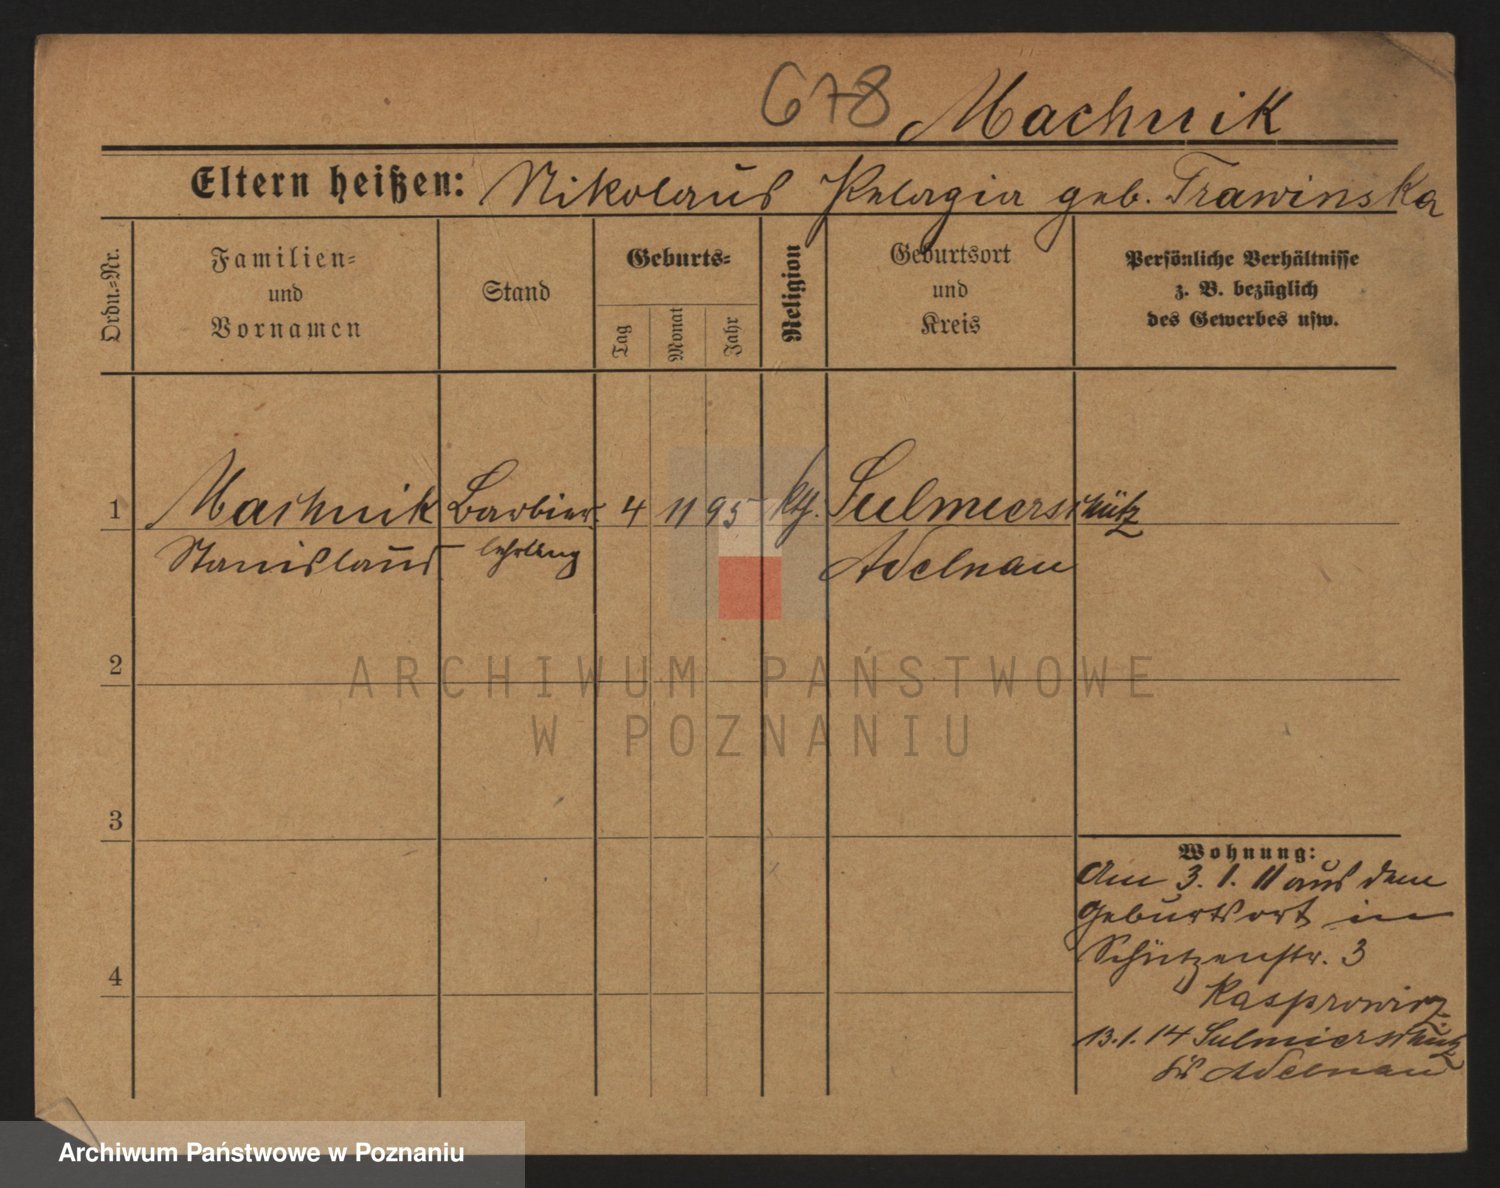 678 Machnik
Eltern heißen: Nikolaus Pelagia geb. Trawinska
Ordn.-Nr.
Familien-
und
Vornamen
Stand
Geburts-
Tag
Monat
Jahr
Religion
Geburtsort
und
Kreis
Persönliche Verhältnisse
z. B. bezüglich
des Gewerbes usw.
1 Machnik Barbier- 4 11 95 kth. Sulmierschütz
Stanislaus lehrling Adelnau
2
ARCHIWUM PAŃSTWOWE
W POZNANIU
3
Wohnung:
Am 3.1.11 aus dem
Geburtsort in
Schützenstr. 3
4
Kasprowicz
13.1.14 Sulmierschütz
Adelnau
Archiwum Państwowe w Poznaniu